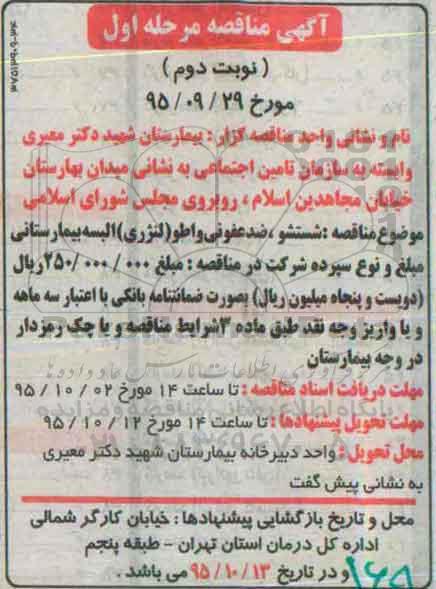 آگهی مناقصه مرحله اول
( نوبت دوم )
مورخ ۲۹ / ۰۹ / ۹۵
نام و نشانی واحد مناقصه گزار : بیمارستان شهید دکتر معیری
وابسته به سازمان تامین اجتماعی به نشانی میدان بهارستان
خیابان مجاهدین اسلام ، روبروی مجلس شورای اسلامی
موضوع مناقصه :شستشو ،ضدعفونی واطو(لنژری)البسه بیمارستانی
مبلغ و نوع سپرده شرکت در مناقصه : مبلغ ۲۵۰/۰۰۰/۰۰۰ ریال
(دویست و پنجاه میلیون ریال) بصورت ضمانتنامه بانکی با اعتبار سه ماهه
و یا واریز وجه نقد طبق ماده ۳شرایط مناقصه و یا چک رمزدار
در وجه بیمارستان
مهلت دریافت اسناد مناقصه : تا ساعت ۱۴ مورخ ۰۲ / ۱۰ / ۹۵
مهلت تحویل پیشنهادها : تا ساعت ۱۴ مورخ ۱۲ / ۱۰ / ۹۵
محل تحویل : واحد دبیرخانه بیمارستان شهید دکتر معیری
به نشانی پیش گفت
محل و تاریخ بازگشایی پیشنهادها : خیابان کارگر شمالی
اداره کل درمان استان تهران - طبقه پنجم
و در تاریخ ۱۳ / ۱۰ / ۹۵ می باشد .
۱۶۵